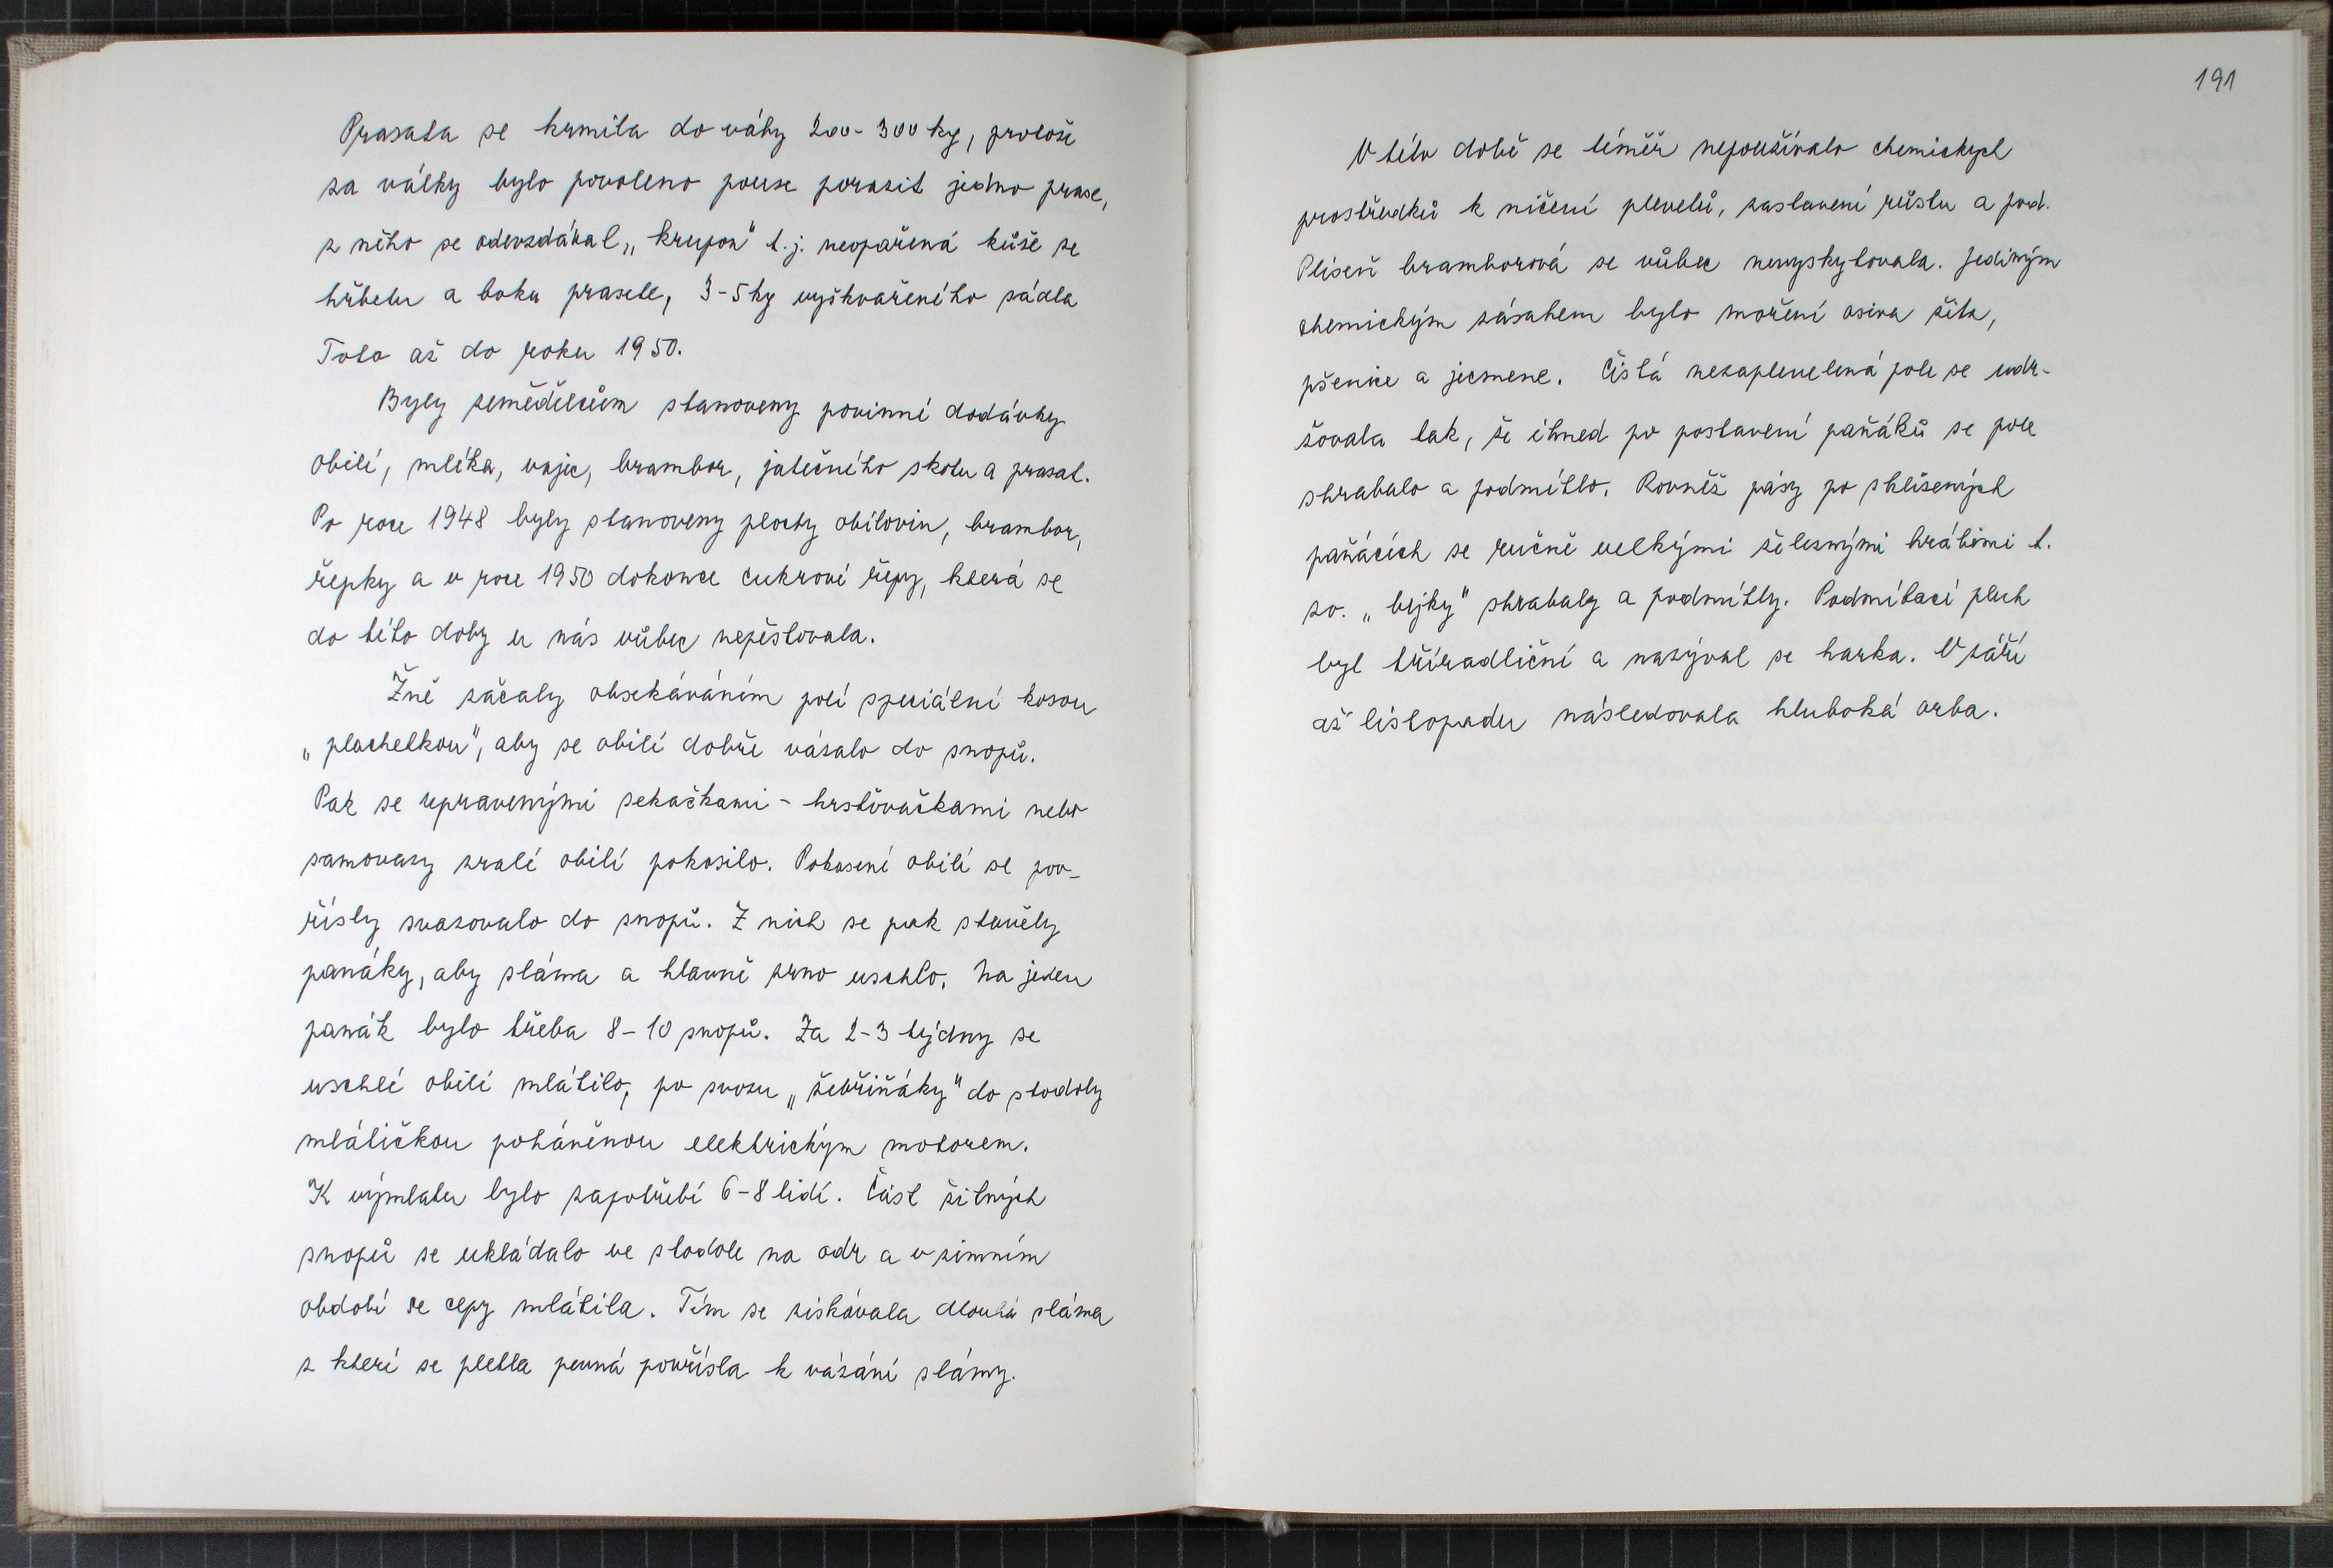 Prasata se krmila do váhy 200-300 kg, protože
za války bylo povoleno pouze porazit jedno prase,
z něho se odevzdával „krupon" t.j. neopařená kůže ze
hřbetu a boku prasete, 3-5 kg vyškvařeného sádla
Toto až do roku 1950.
Byly zemědělcům stanoveny povinné dodávky
obilí, mléka, vajec, brambor, jatečného skotu a prasat.
Po roce 1948 byly stanoveny plochy obilovin, brambor,
řepky a v roce 1950 dokonce cukrové řepy, která se
do této doby u nás vůbec nepěstovala.
Žně začaly obsekáváním polí speciální kosou
„plachetkou", aby se obilí dobře vázalo do snopů.
Pak se upravenými sekačkami - hrsťovačkami nebo
samovazy zralé obilí pokosilo. Pokosené obilí se pov-
řísly svazovalo do snopů. Z nich se pak stavěly
panáky, aby sláma a hlavně zrno uschlo. Na jeden
panák bylo třeba 8-10 snopů. Za 2-3 týdny se
uschlé obilí mlátilo, po svozu „žebřiňáky" do stodoly
mlátičkou poháněnou elektrickým motorem.
K výmlatu bylo zapotřebí 6-8 lidí. Část žitných
snopů se ukládalo ve stodole na odr a v zimním
období se cepy mlátila. Tím se získávala dlouhá sláma
z které se pletla pevná povřísla k vázání slámy.
191
V této době se téměř nepoužívalo chemických
prostředků k ničení plevelů, zastavení růstu a pod.
Plíseň bramborová se vůbec nevyskytovala. Jediným
chemickým zásahem bylo moření osiva žita,
pšenice a jecmene. Čistá nezaplevelená pole se udr-
žovala tak, že ihned po postavení paňáků se pole
shrabalo a podmítlo. Rovněž pásy po sklizených
paňácích se ručně velkými železnými hráběmi t.
zv. „bejky" shrabaly a podmítly. Podmítací pluh
byl tříradliční a nazýval se harka. V září
až listopadu následovala hluboká orba.